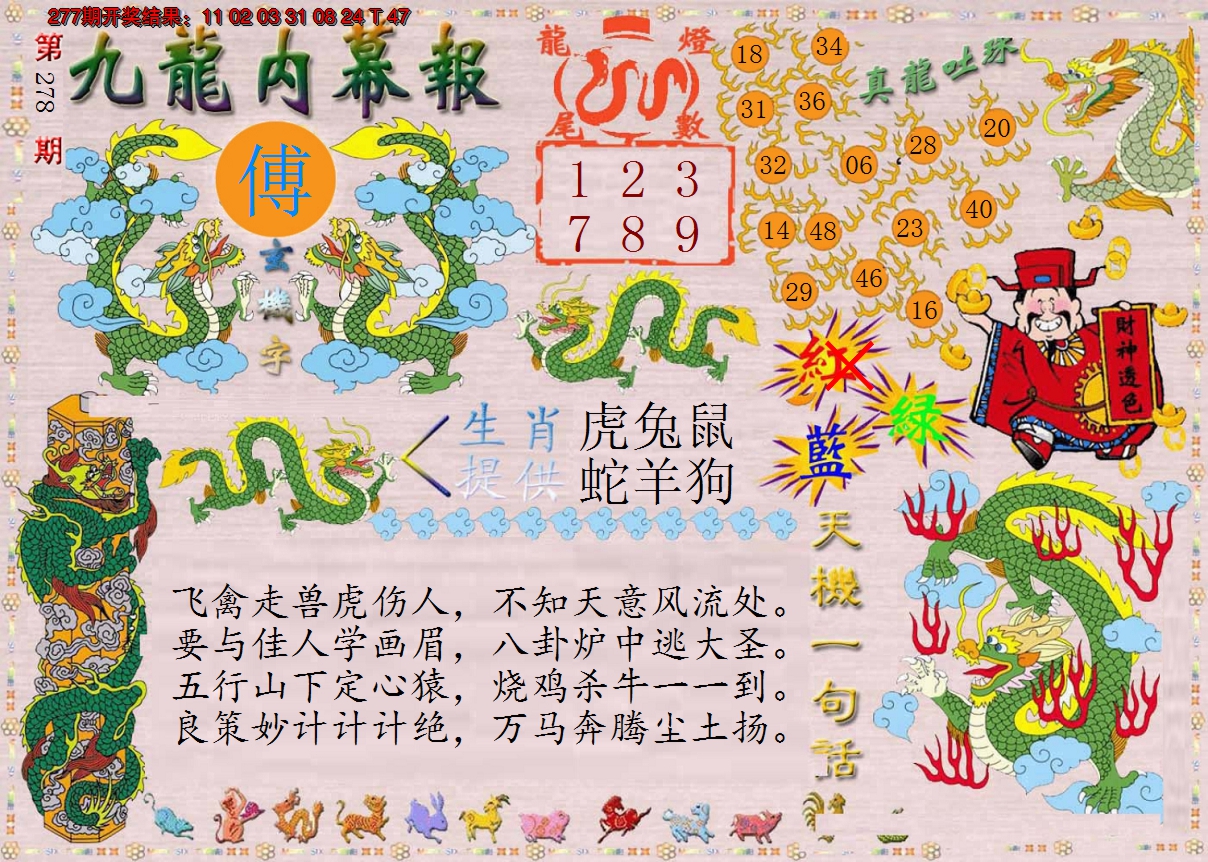 277期开奖结果：11 02 03 31 06 24 T 47
第278期
九龍内幕報
傅
玄機字
龍燈
尾數
1 2 3
7 8 9
真龍吐珠
18
34
31
36
20
28
32
06
40
14
48
23
46
29
16
財神透色
紅
綠
藍
生肖 虎兔鼠
提供 蛇羊狗
天機一句話
飞禽走兽虎伤人，不知天意风流处。
要与佳人学画眉，八卦炉中逃大圣。
五行山下定心猿，烧鸡杀牛一一到。
良策妙计计计绝，万马奔腾尘土扬。